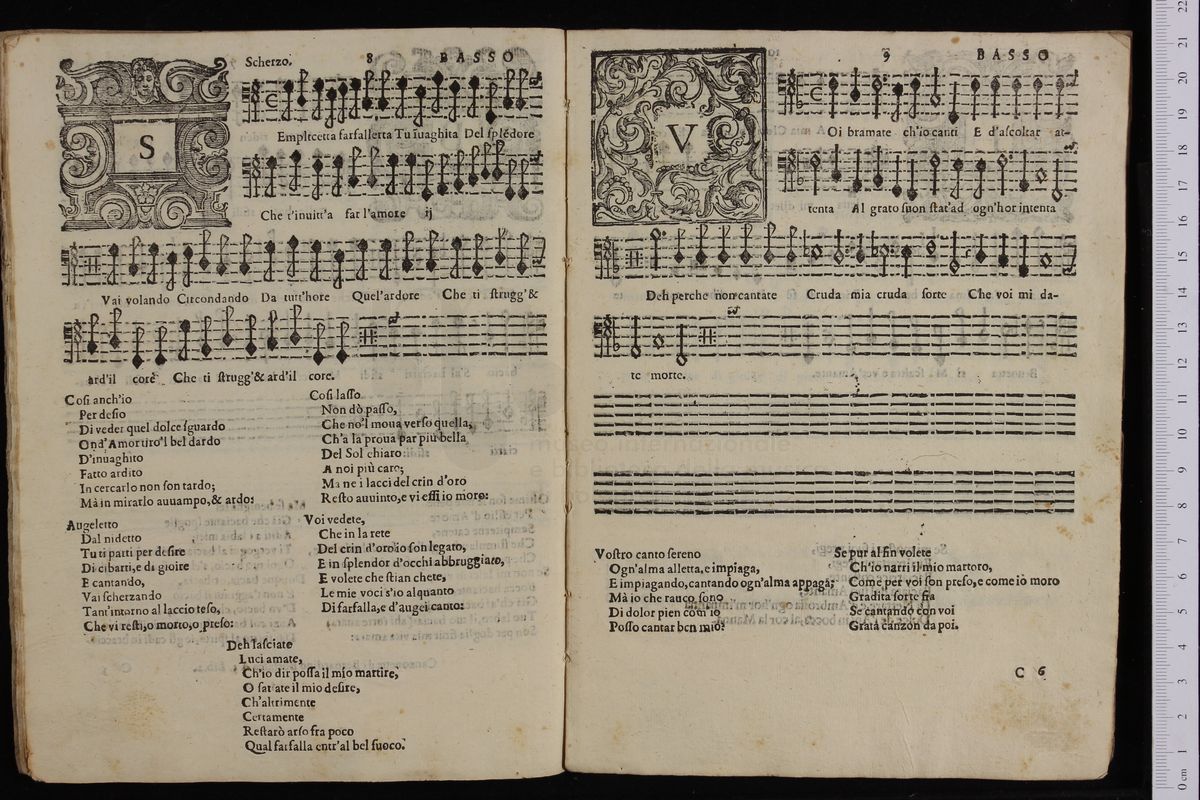 Scherzo. 8 BASSO
S
Emplicetta farfalletta Tu īuaghita Del splēdore
Che t'inuitt'a far l'amore ij
Vai volando Circondando Da tutt'hore Quel'ardore Che ti strugg'&
ard'il core Che ti strugg'& ard'il core.
Cosi anch'io
Per desio
Di veder quel dolce sguardo
Ond'Amor tiro'l bel dardo
D'inuaghito
Fatto ardito
In cercarlo non son tardo;
Mà in mirarlo auuampo, & ardo:
Cosi lasso
Non dò passo,
Che no'l moua verso quella,
Ch'a la proua par più bella
Del Sol chiaro
A noi più caro;
Ma ne i lacci del crin d'oro
Resto auuinto, e vi essi io moro:
Augeletto
Dal nidetto
Tu ti parti per desire
Di cibarti, e di gioire
E cantando,
Vai scherzando
Tant'intorno al laccio teso,
Che vi resti, o morto, o preso:
Voi vedete,
Che in la rete
Del crin d'oro io son legato,
E in splendor d'occhi abbruggiato,
E volete che stian chete,
Le mie voci s'io alquanto
Di farfalla, e d'augei canto:
Deh lasciate
Luci amate,
Ch'io dir possa il mio martire,
O satiate il mio desire,
Ch'altrimente
Certamente
Restarò arso fra poco
Qual farfalla entr'al bel fuoco.
9 BASSO
V
Oi bramate ch'io canti E d'ascoltar at-
tenta Al grato suon stat'ad ogn'hor intenta
Deh perche non cantate Cruda mia cruda sorte Che voi mi da-
te morte.
Vostro canto sereno
Ogn'alma alletta, e impiaga,
E impiagando, cantando ogn'alma appaga;
Mà io che rauco sono
Di dolor pien com'io
Posso cantar ben mio?
Se pur al fin volete
Ch'io narri il mio martoro,
Come per voi son preso, e come iò moro
Gradita sorte fra
Se cantando con voi
Grata canzon da poi.
C 6